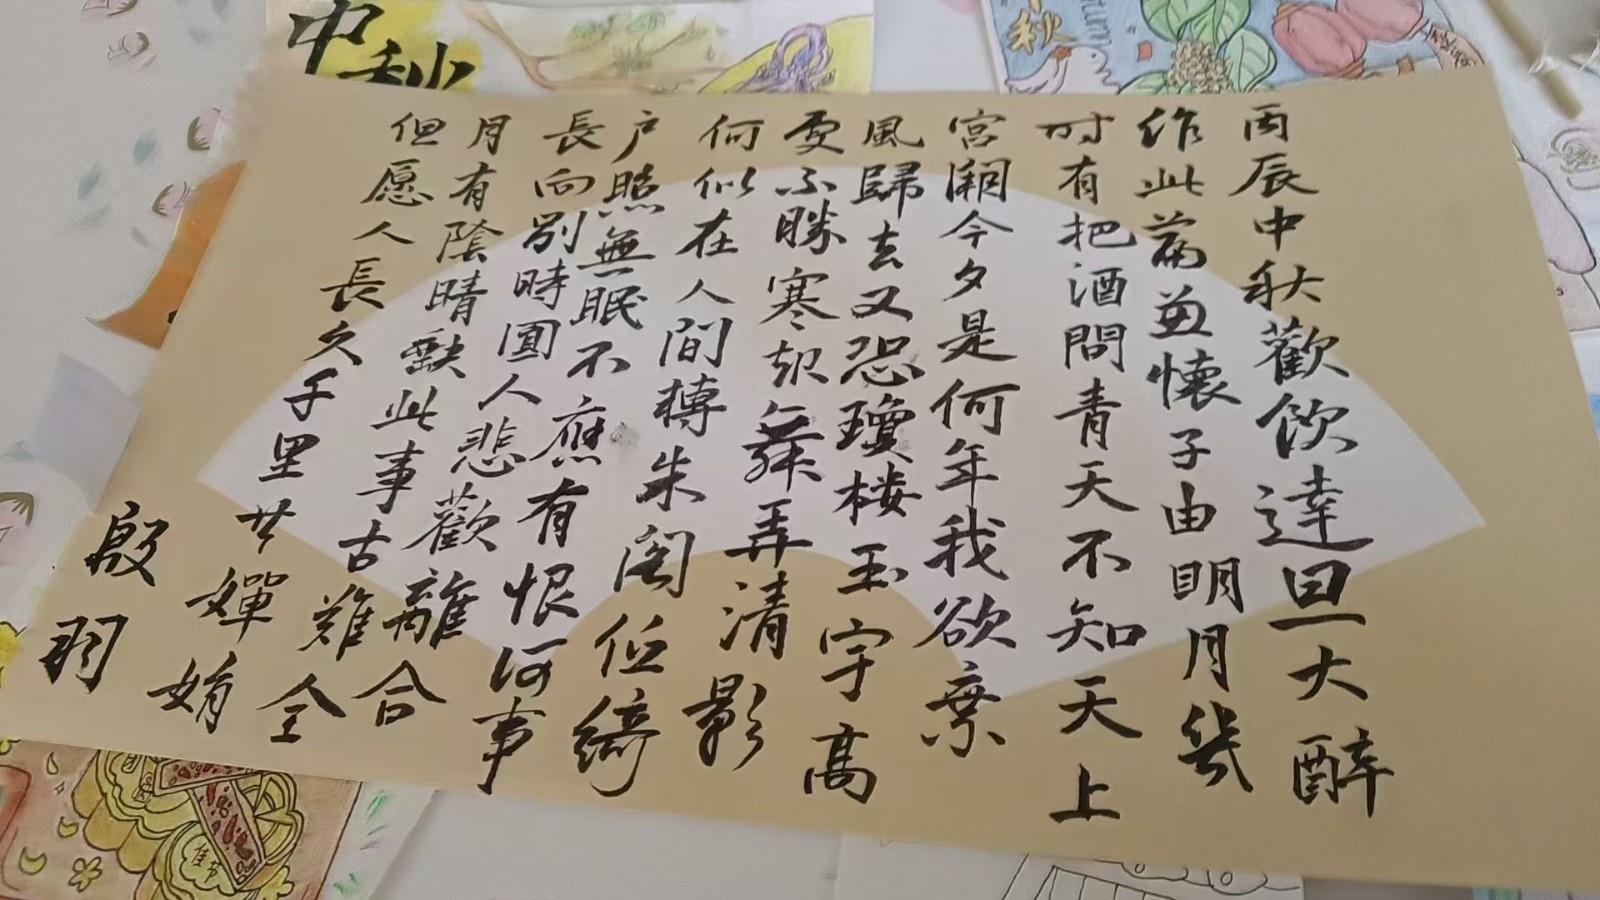 丙辰中秋歡飲達旦大醉
作此篇兼懷子由明月幾
时有把酒問青天不知天上
宮闕今夕是何年我欲乘
風歸去又恐瓊楼玉宇高
處不勝寒起舞弄清影
何似在人間轉朱阁低綺
户照無眠不應有恨何事
長向別時圓人悲歡離合
月有陰晴缺此事古難全
但愿人長久千里共嬋娟
殷羽
中秋
秋
佳节